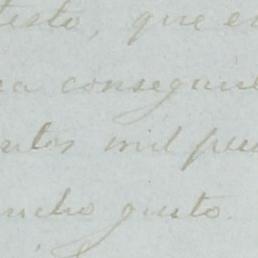 testo, que e
a conseguir
ntos mil pe
ucho gusto.